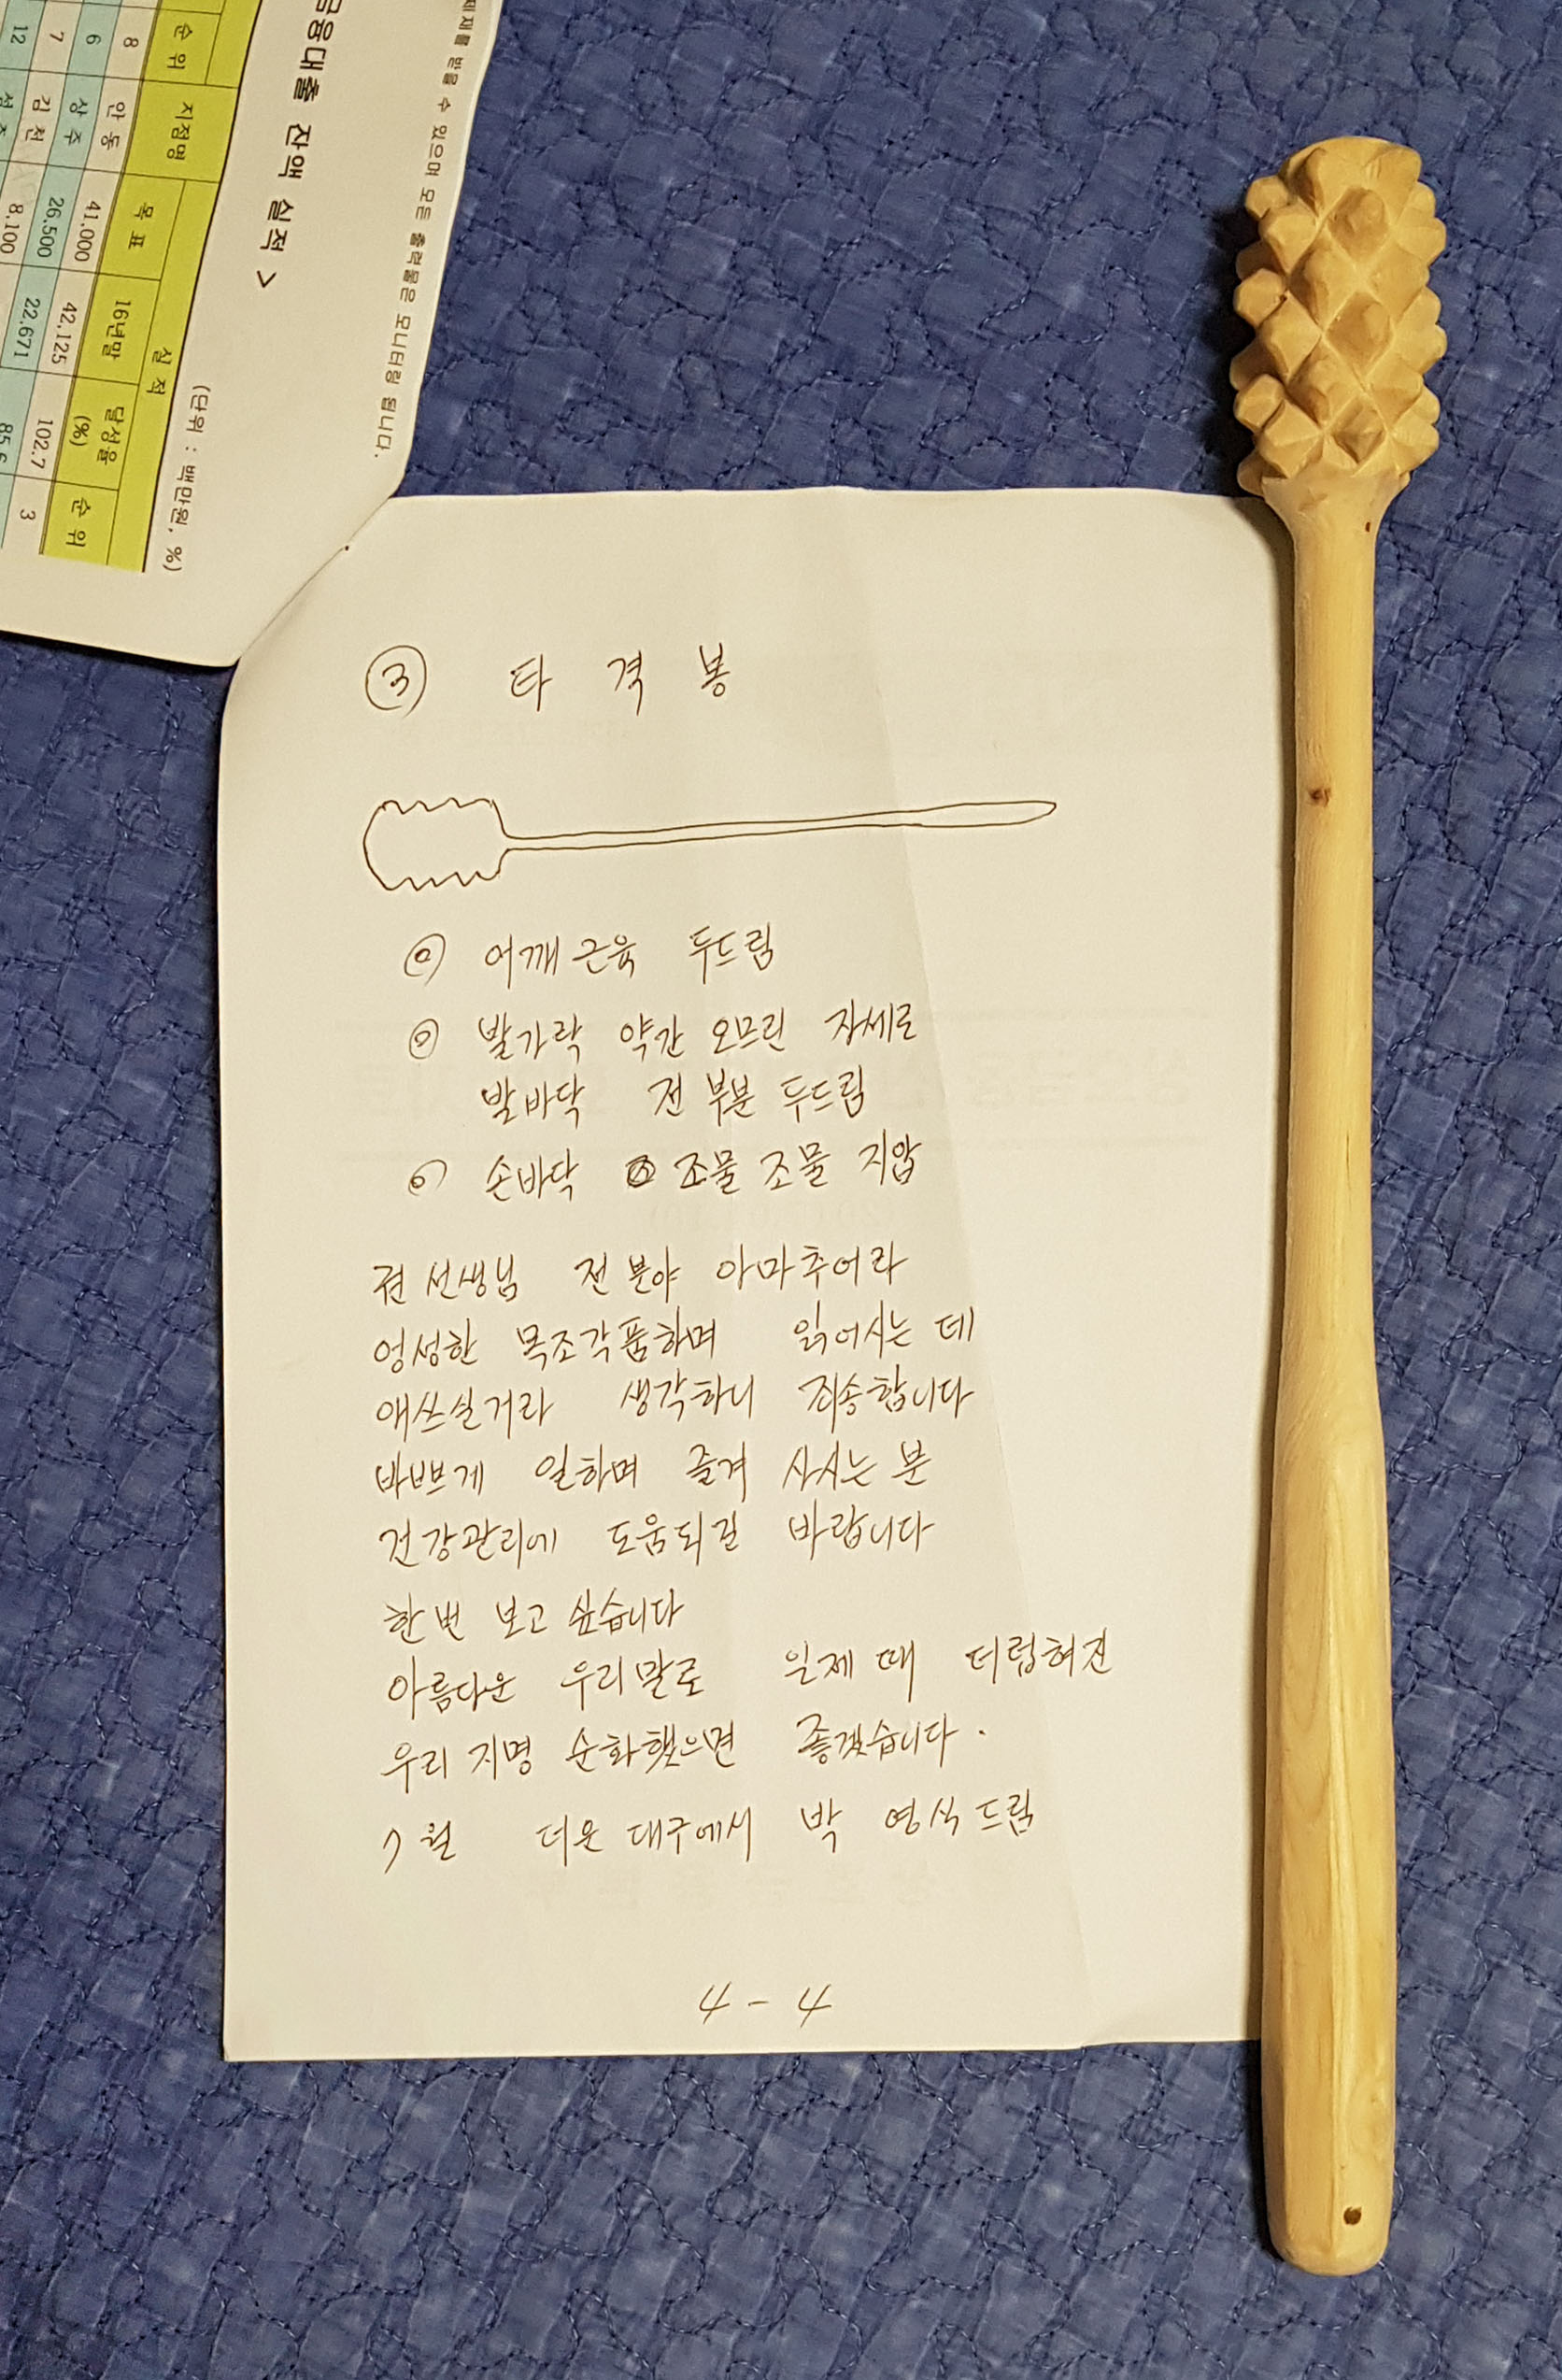 제재를 받을 수 있으며 모든 출력물은 모니터링 됩니다.
금융대출 잔액 실적 >
(단위 : 백만원, %)
순위 지점명 실적
목표 16년말 달성율(%) 순위
8 안동 41,000 42,125 102.7 3
6 상주 26,500 22,671 85.6
7 김천 8,100
12 성주
③ 타 격 봉
◎ 어깨근육 두드림
◎ 발가락 약간 오므린 자세로
발바닥 전 부분 두드림
◎ 손바닥 조물조물 지압
권 선생님 전 분야 아마추어라
엉성한 목조각품하며 읽어시는 데
애쓰실거라 생각하니 죄송합니다
바쁘게 일하며 즐겨 사시는 분
건강관리에 도움되길 바랍니다
한번 보고 싶습니다
아름다운 우리말로 일제 때 더럽혀진
우리 지명 순화했으면 좋겠습니다.
7월 더운 대구에서 박 영식 드림
4 - 4